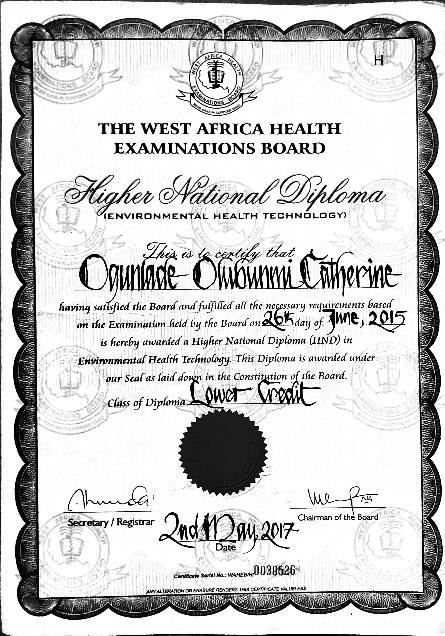 H
WEST AFRICA HEALTH
EXAMINATIONS BOARD
THE WEST AFRICA HEALTH
EXAMINATIONS BOARD
Higher National Diploma
(ENVIRONMENTAL HEALTH TECHNOLOGY)
This is to certify that
Ogunlade Olubunmi Catherine
having satisfied the Board and fulfilled all the necessary requirements based
on the Examination held by the Board on 26th day of June, 2015
is hereby awarded a Higher National Diploma (HND) in
Environmental Health Technology. This Diploma is awarded under
our Seal as laid down in the Constitution of the Board.
Class of Diploma Lower Credit
Secretary / Registrar
Chairman of the Board
2nd May, 2017
Date
Certificate Serial No.: WAHEB/H 0038526
ANY ALTERATION OR ERASURE RENDERS THIS CERTIFICATE VALUELESS